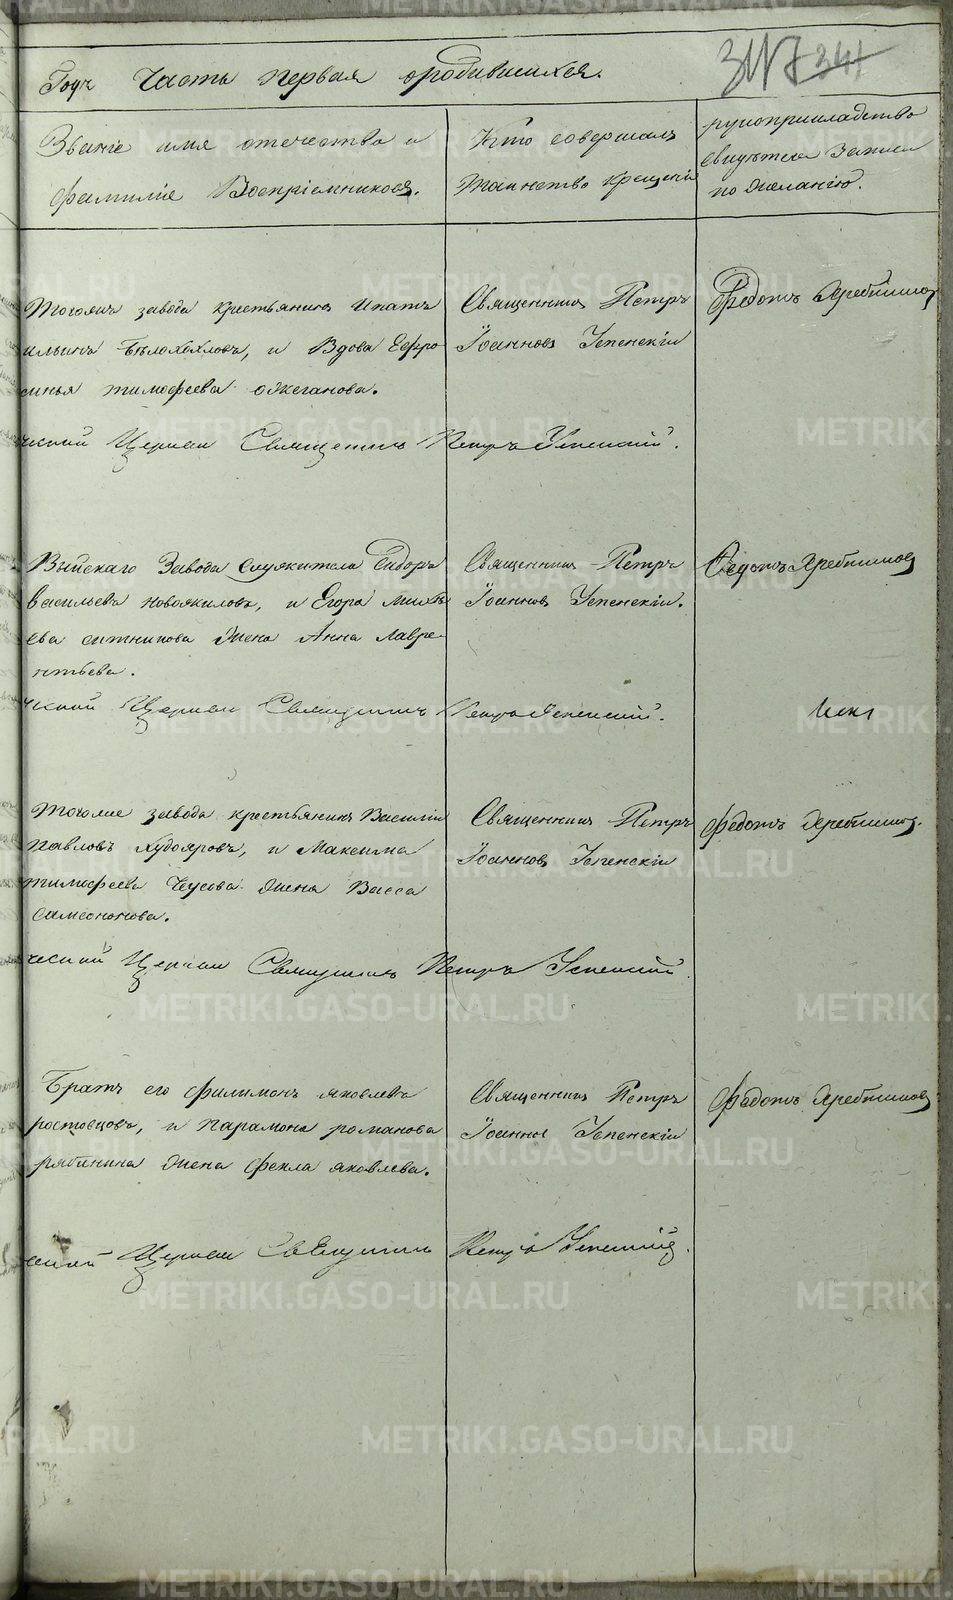 Годъ Часть первая о родившихся.
347 341
Званіе имя отечество и
фамиліе Воспріемниковъ.
Кто совершалъ
таинство крещенія
рукоприкладство
свидѣтелей записи
по желанію.
Тогожъ завода крестьянинъ Ипатъ
ильинъ Бѣлохохловъ, и Вдова Ефро
синья тимофеева ожеганова.
Священникъ Петръ
Іоанновъ Успенскій
Федотъ
ческой Церкви Священникъ Петръ Успенский.
Выйскаго Завода служителя Сидоръ
васильевъ новожиловъ, и Егора
ева ситникова жена Анна Лавре-
нтьева.
Священникъ Петръ
Іоанновъ Успенскій.
Федотъ
ческой Церкви Священникъ Петръ Успенский.
Тогоже завода крестьянинъ Василій
павловъ Худояровъ, и Максима
тимофеева Чусова жена Васса
самсонова.
Священникъ Петръ
Іоанновъ Успенскій
Федотъ
ческой Церкви Священникъ Петръ Успенский
Братъ его филимонъ яковлевъ
ростовцовъ, и парамона романова
рябинина жена фекла яковлева.
Священникъ Петръ
Іоанновъ Успенскій
Федотъ
Церкви Священникъ Петръ Успенский.
METRIKI.GASO-URAL.RU